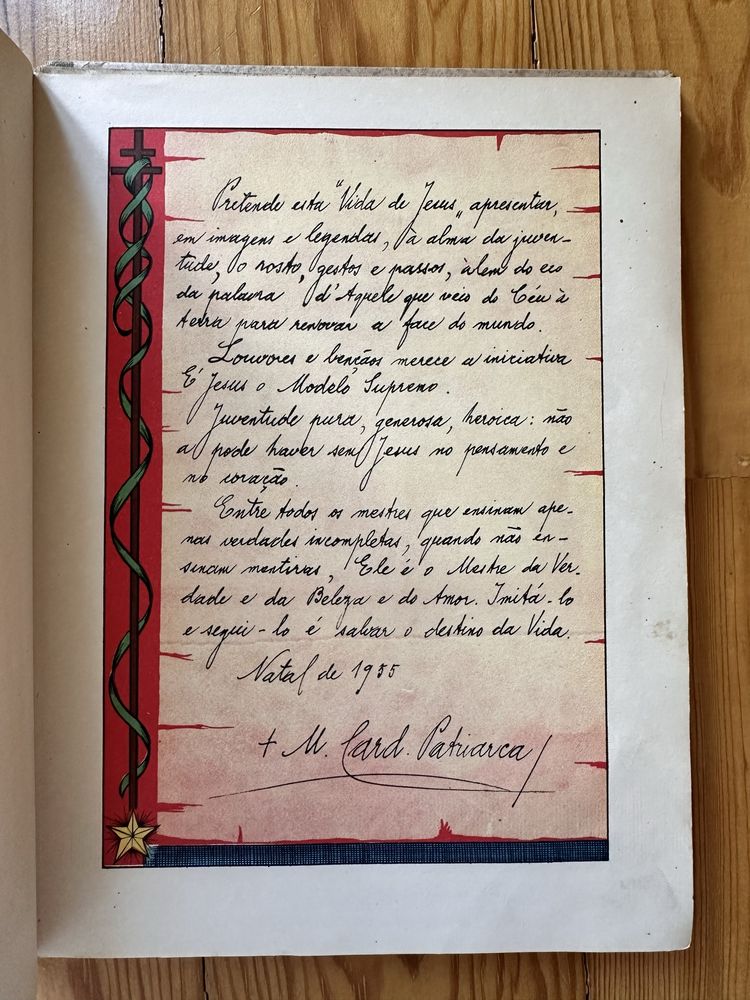 Pretende esta "Vida de Jesus„ apresentar,
em imagens e legendas, à alma da juven-
tude, o rosto, gestos e passos, àlem do eco
da palavra d'Aquele que veio do Céu à
terra para renovar a face do mundo.
Louvores e bençãos merece a iniciativa
É Jesus o Modelo Supremo.
Juventude pura, generosa, heroica: não
a pode haver sem Jesus no pensamento e
no coração.
Entre todos os mestres que ensinam ape-
nas verdades incompletas, quando não en-
sinam mentiras, Ele é o Mestre da Ver-
dade e da Beleza e do Amor. Imitá-lo
e segui-lo é salvar o destino da Vida.
Natal de 1955
+ M. Card. Patriarca